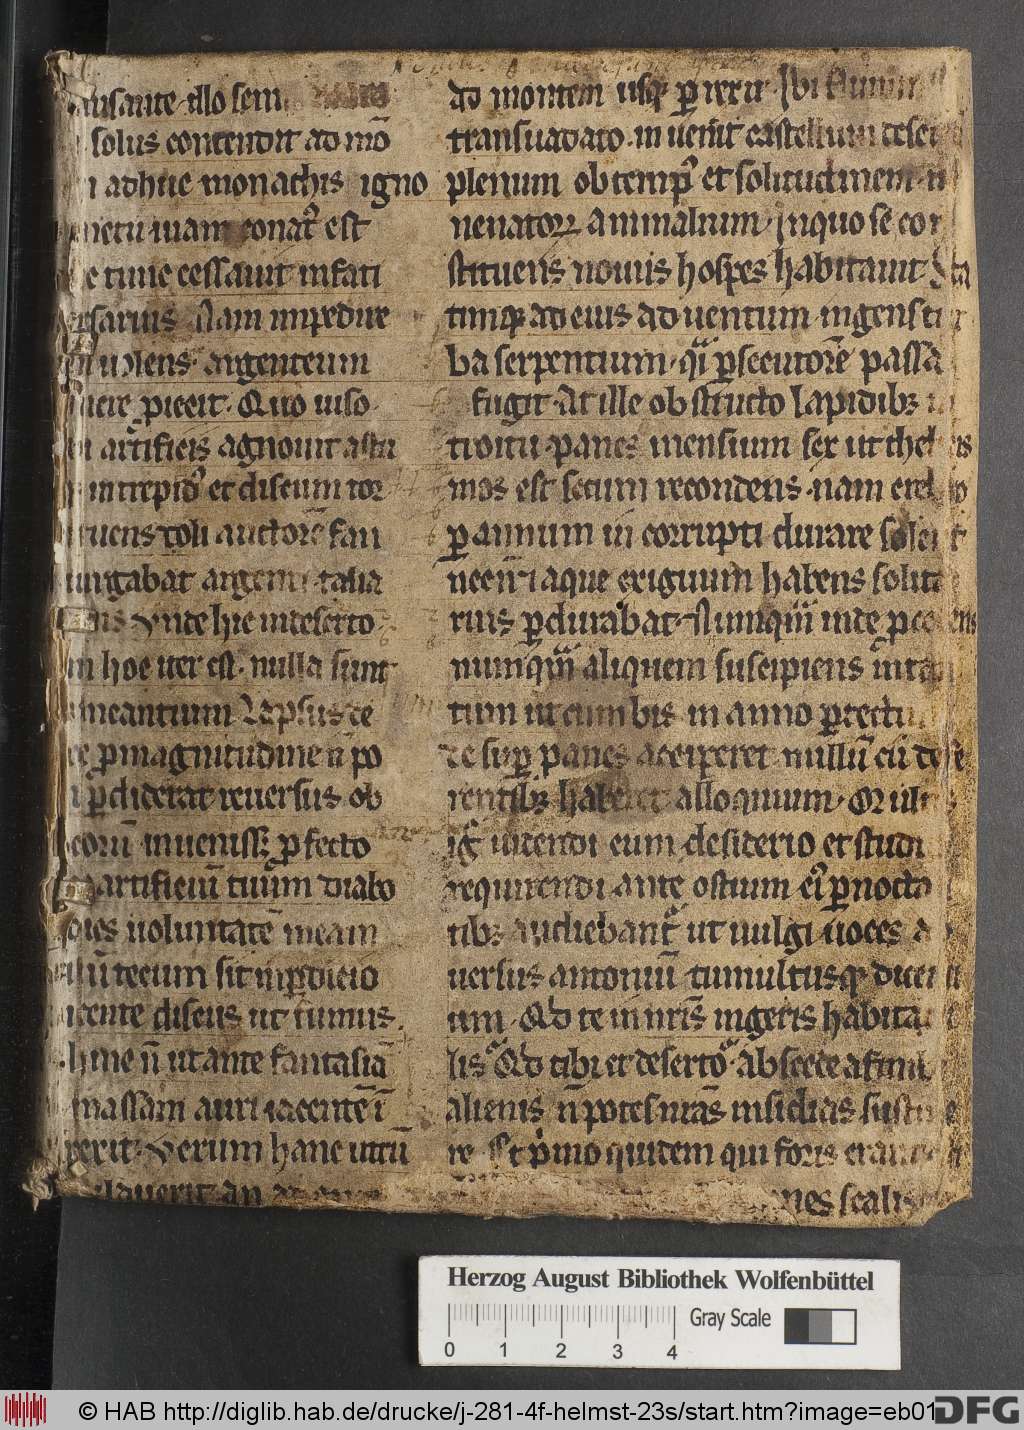 illo sem
solus contendit ad mo̅
adhuc monachis igno
uiam conat᷒ est
tunc cessauit infati
sarius Nam impedire
uolens argenteum
ꝓiecit · Quo uiso
artificis agnouit astu
intrepid᷒ et discum tor
tuens doli auctore̅ fan
purgabat argenti talia
Vnde hic indeserto
hoc iter est · nulla sunt
meantium Lapsus de
ꝓ magnitudine n̅ po
ꝑdiderat reuersus ob
coru̅ inuenisset ꝓfecto
artificiu̅ tuum diabo
dies uoluntate̅ meam
tecum sit inꝑdicio
icente discus ut fumus
hinc n̅ ut ante fantasia̅
massam auri iacente̅ i̅
Verum hanc utru̅
an
ad montem usq; ꝑrexit · Ibi flumin
transuadato · inuenit castellum deser
plenum ob temp᷒ et solitudinem
uenatoꝝ animalium · Inquo se con
stituens nouus hospes habitauit Sta
timq; ad eius aduentum · ingens tur
ba serpentium · qi ꝑsecutore̅ passa
fugit · At ille obstructo lapidibꝫ in
troitu · panes mensium sex ut theb
mos est secum recondens · nam
ꝑ annum incorrupti durare solent
necn̅ · aque exiguum habens solita
rius ꝑdurabat · Numqua̅ inde ꝓce
numqua̅ aliquem suscipiens intan
tum ut cum bis in anno ꝑ tectu
de suꝑ panes acciperet · nullu̅ cu̅ defe
rentibꝫ haberet alloquium · Multi
ig̅ uidendi eum desiderio et studi
requirendi ante ostium ei᷒ ꝑnocta
tibꝫ audiebant᷑ ut uulgi uoces a
uersus antoniu̅ tumultusq; dicen
tium · Qd te in nr̅is ingeris habita
lis Qd tibi et deserto · abscede a finib
alienis n̅ potes n̅ras insidias susti
re Et p̅mo quidem qui foris erant
nes scali
Herzog August Bibliothek Wolfenbüttel
Gray Scale
0 1 2 3 4
© HAB http://diglib.hab.de/drucke/j-281-4f-helmst-23s/start.htm?image=eb01
DFG